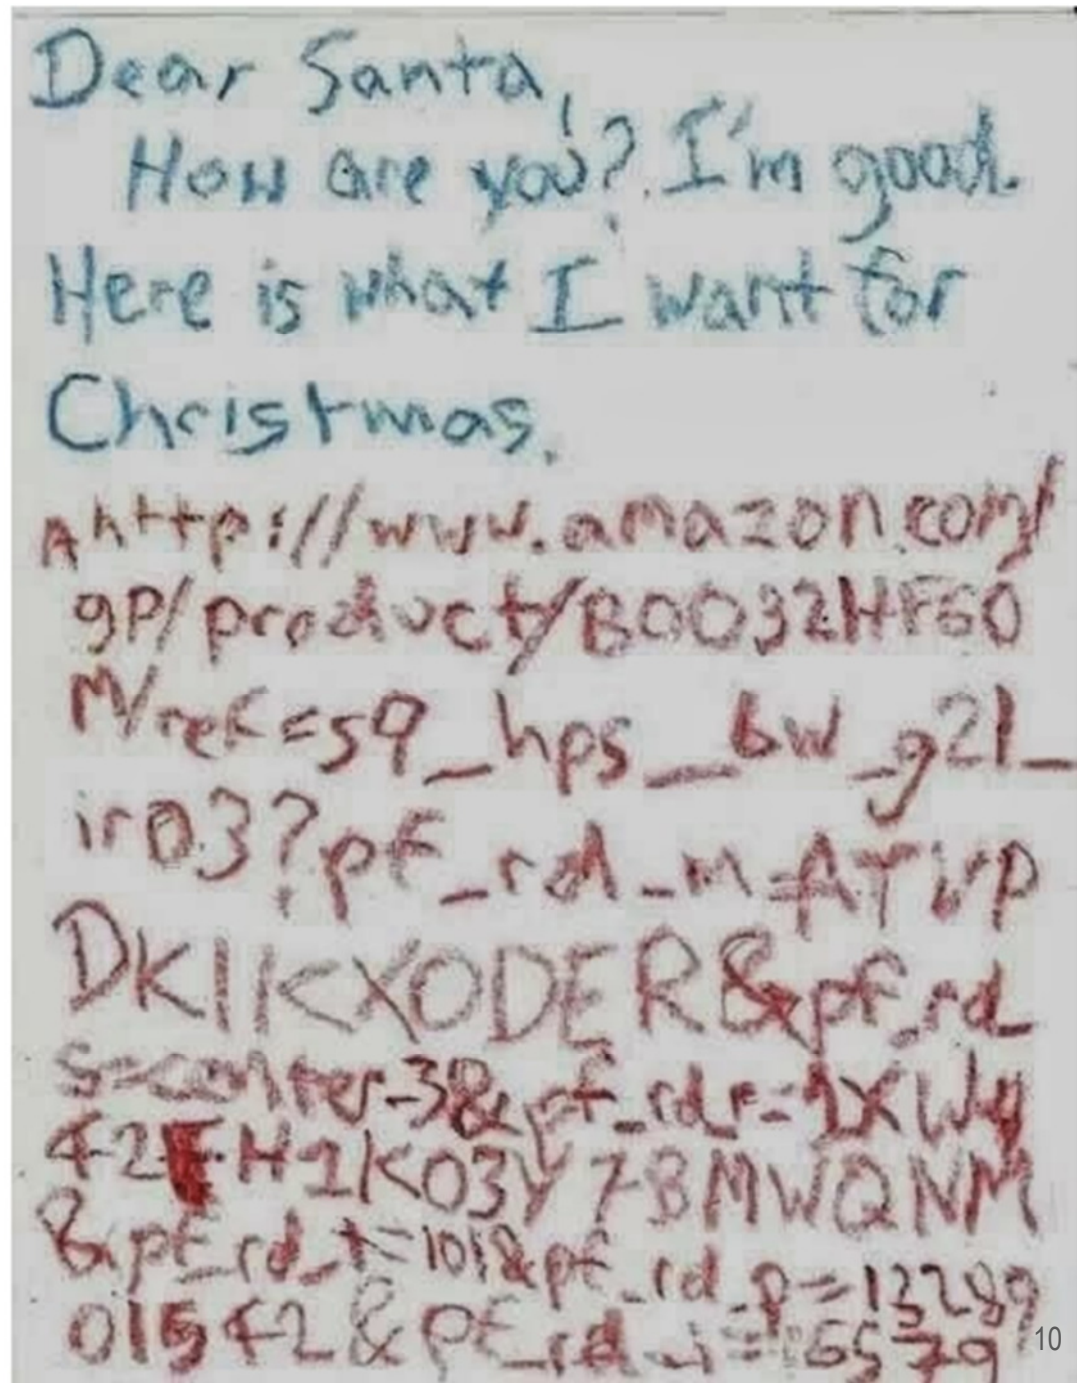 Dear Santa,
How are you? I'm good.
Here is what I want for
Christmas.
Ahttp://www.amazon.com/
gp/product/B0032HF60
M/ref=s9_hps_bw_g21_
ir03?pf_rd_m=ATVP
DKIKX0DER&pf_rd_
s=center-3&pf_rd_r=1XWY
42FH1K03Y7BMWQNM
&pf_rd_t=101&pf_rd_p=13289
01542&pf_rd_i=16579
10